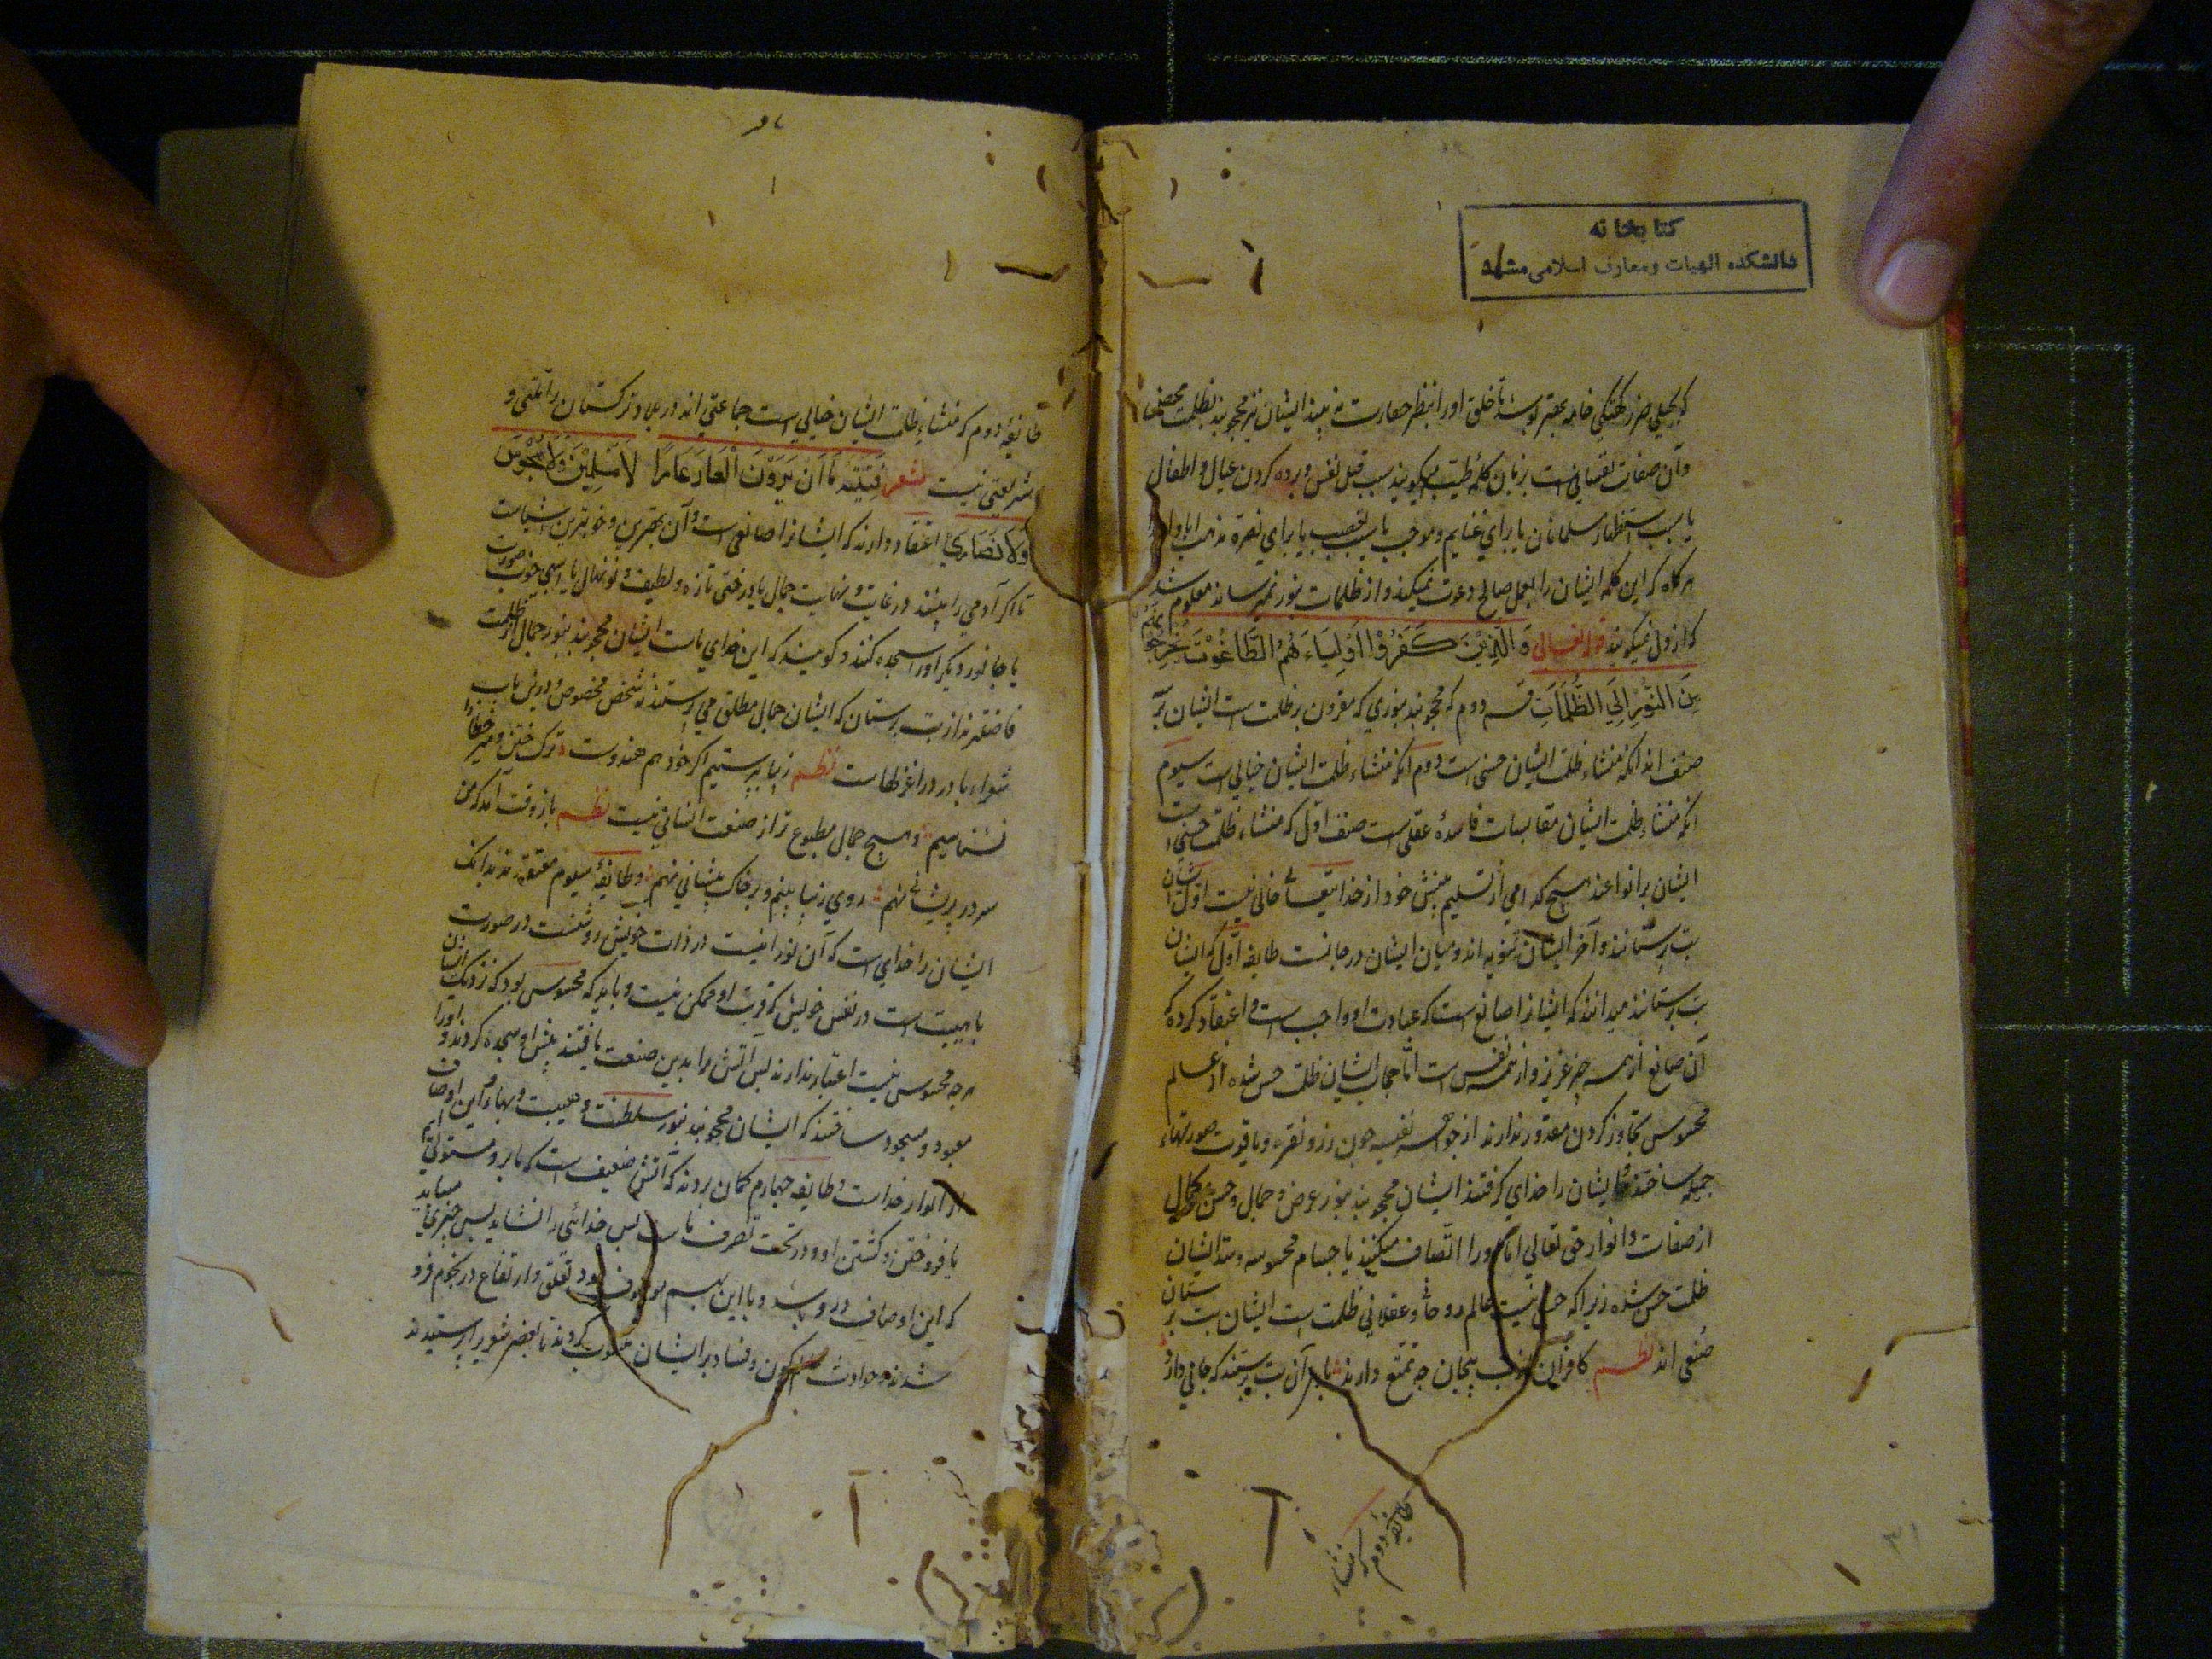 کتابخانه
دانشکده الهیات و معارف اسلامی مشهد
وآن صفات نفسانی است بزبان کلمهٔ طیّب میگویند سبب قتل نفس و برده کردن عیال و اطفال
یا سبب استظهار مسلمانان یا برای غنایم و موجب یا سبب تعصب یا برای نصرة مذهب ابا و اجداد
هر گاه که این کلمه ایشان را بعمل صالح دعوت نمیکند و از ظلمات بنور نمیرساند معلوم شد
که از دل نمیگویند قوله تعالی وَالَّذِیْنَ کَفَرُوْا اَوْلِیَاءَهُمُ الطَّاغُوْتُ یُخْرِجُوْنَهُمْ
مِنَ النُّوْرِ اِلَی الظُّلُمَاتِ قسم دوم که محجوبند بنوری که مقرون بر ظلمت است ایشان بر
صنف اند انکه منشاء ظلمت ایشان حسی است دوم انکه منشاء ظلمت ایشان خیالی است سیوم
انکه منشاء ظلمت ایشان مقایسات فاسدهٔ عقلی است صنف اوّل که منشاء ظلمت حسی است
ایشان بر انواعند هیچ که امی از تسلیم بینش خود از خدایتعالی خالی نیست اوّل ایشان
بت پرستانند و آخر ایشان ثنویه اند و میان ایشان درجانست طایفه اوّل که ایشان
بت پرستانند میدانند که ایشانرا صانع است که عبادت او واجب است و اعتقاد کرده که
آن صانع از همه چیز عزیز و از همه نفیس است امّا حجاب ایشان ظلمت حس شده از عالم
محسوس تجاوز کردن مقدور ندارند از جواهر نفیسه چون زر و نقره و یاقوت صورتهاء
جمیله ساختند و ایشان را خدای گرفتند ایشان محجوبند بنور عرض و جمال و حسن و کمال
از صفات و انوار حق تعالی اما او را اتّصاف میکنند باجسام محسوسه و سدّ ایشان
ظلمت حس شده زیرا که حس نسبت عالم روحانی و عقلانی ظلمت است ایشان بت پرستان
صنفی اند نظم کافران از بت بیجان چه تمتّع دارند باری آن بت بپرستند که جانی دارد
طایفهٔ دوم که منشاء
طایفهٔ دوم که منشاء ظلمت ایشان خیالی است جماعتی اند در بلاد ترکستان را ملتی و
شریعتی نیست شعر فِتْیَةٌ مَا اَن یَرَوْنَ الْعَارَ عَارًا لَا مُسْلِمِیْنَ وَلَا مَجُوْسَ
وَلَا نَصَاریٰ اعتقاد دارند که ایشانرا صانعی است و آن بهترین و خوبترین اشیاست
تا اگر آدمی را ببینند در غایت و نهایت جمال یا درختی تازه و لطیف و نونهال یا اسبی خوب صورت
یا جانور دیگر اورا سجده کنند و گویند که این خدای ماست ایشان محجوبند بنور جمال از ظلمت
فاضلترند از بت پرستان که ایشان جمال مطلق می پرستند نه شخص مخصوص و درین باب
شعراء را در درا غزلهاست نظم زیبا پرستیم اگر خود هم هندوست ترک ختن و میر خطا را
نشناسیم و هیچ جمال مطبوع تر از صنعت انسانی نیست نظم باز وقت آمد که من
سر در پریشانی نهم روی زیبا بینم و بر خاک پیشانی نهم و طایفهٔ سیوم معتقدند بدانک
ایشان را خدای است که آن نورانیست در ذات خویش روشنست در صورت
با هیبت است در نفس خویش که قربت او ممکن نیست و باید که محسوس بود که نزدیک ایشان
هر چه محسوس نیست اعتبار ندارند پس آتش را بدین صنعت یافتند پیش او سجده کردند و اورا
معبود و مسجود ساختند که ایشان محجوبند بنور سلطنت و هیبت و بهاء و این اوصاف
از انوار خداست و طایفه چهارم گمان بردند که آتش ضعیف است که ما برو مستولی ایم
بافروختن و کشتن او و در تحت تصرف ماست پس خدائی را نشاید پس چیزی میباید
که این اوصاف درو باشد و با این همه موصوف بود بعلو و ارتفاع در نجوم فرو
شدند و حوادث عالم کون و فساد بر ایشان منسوب کردند تا بعضی شعری را پرستیدند